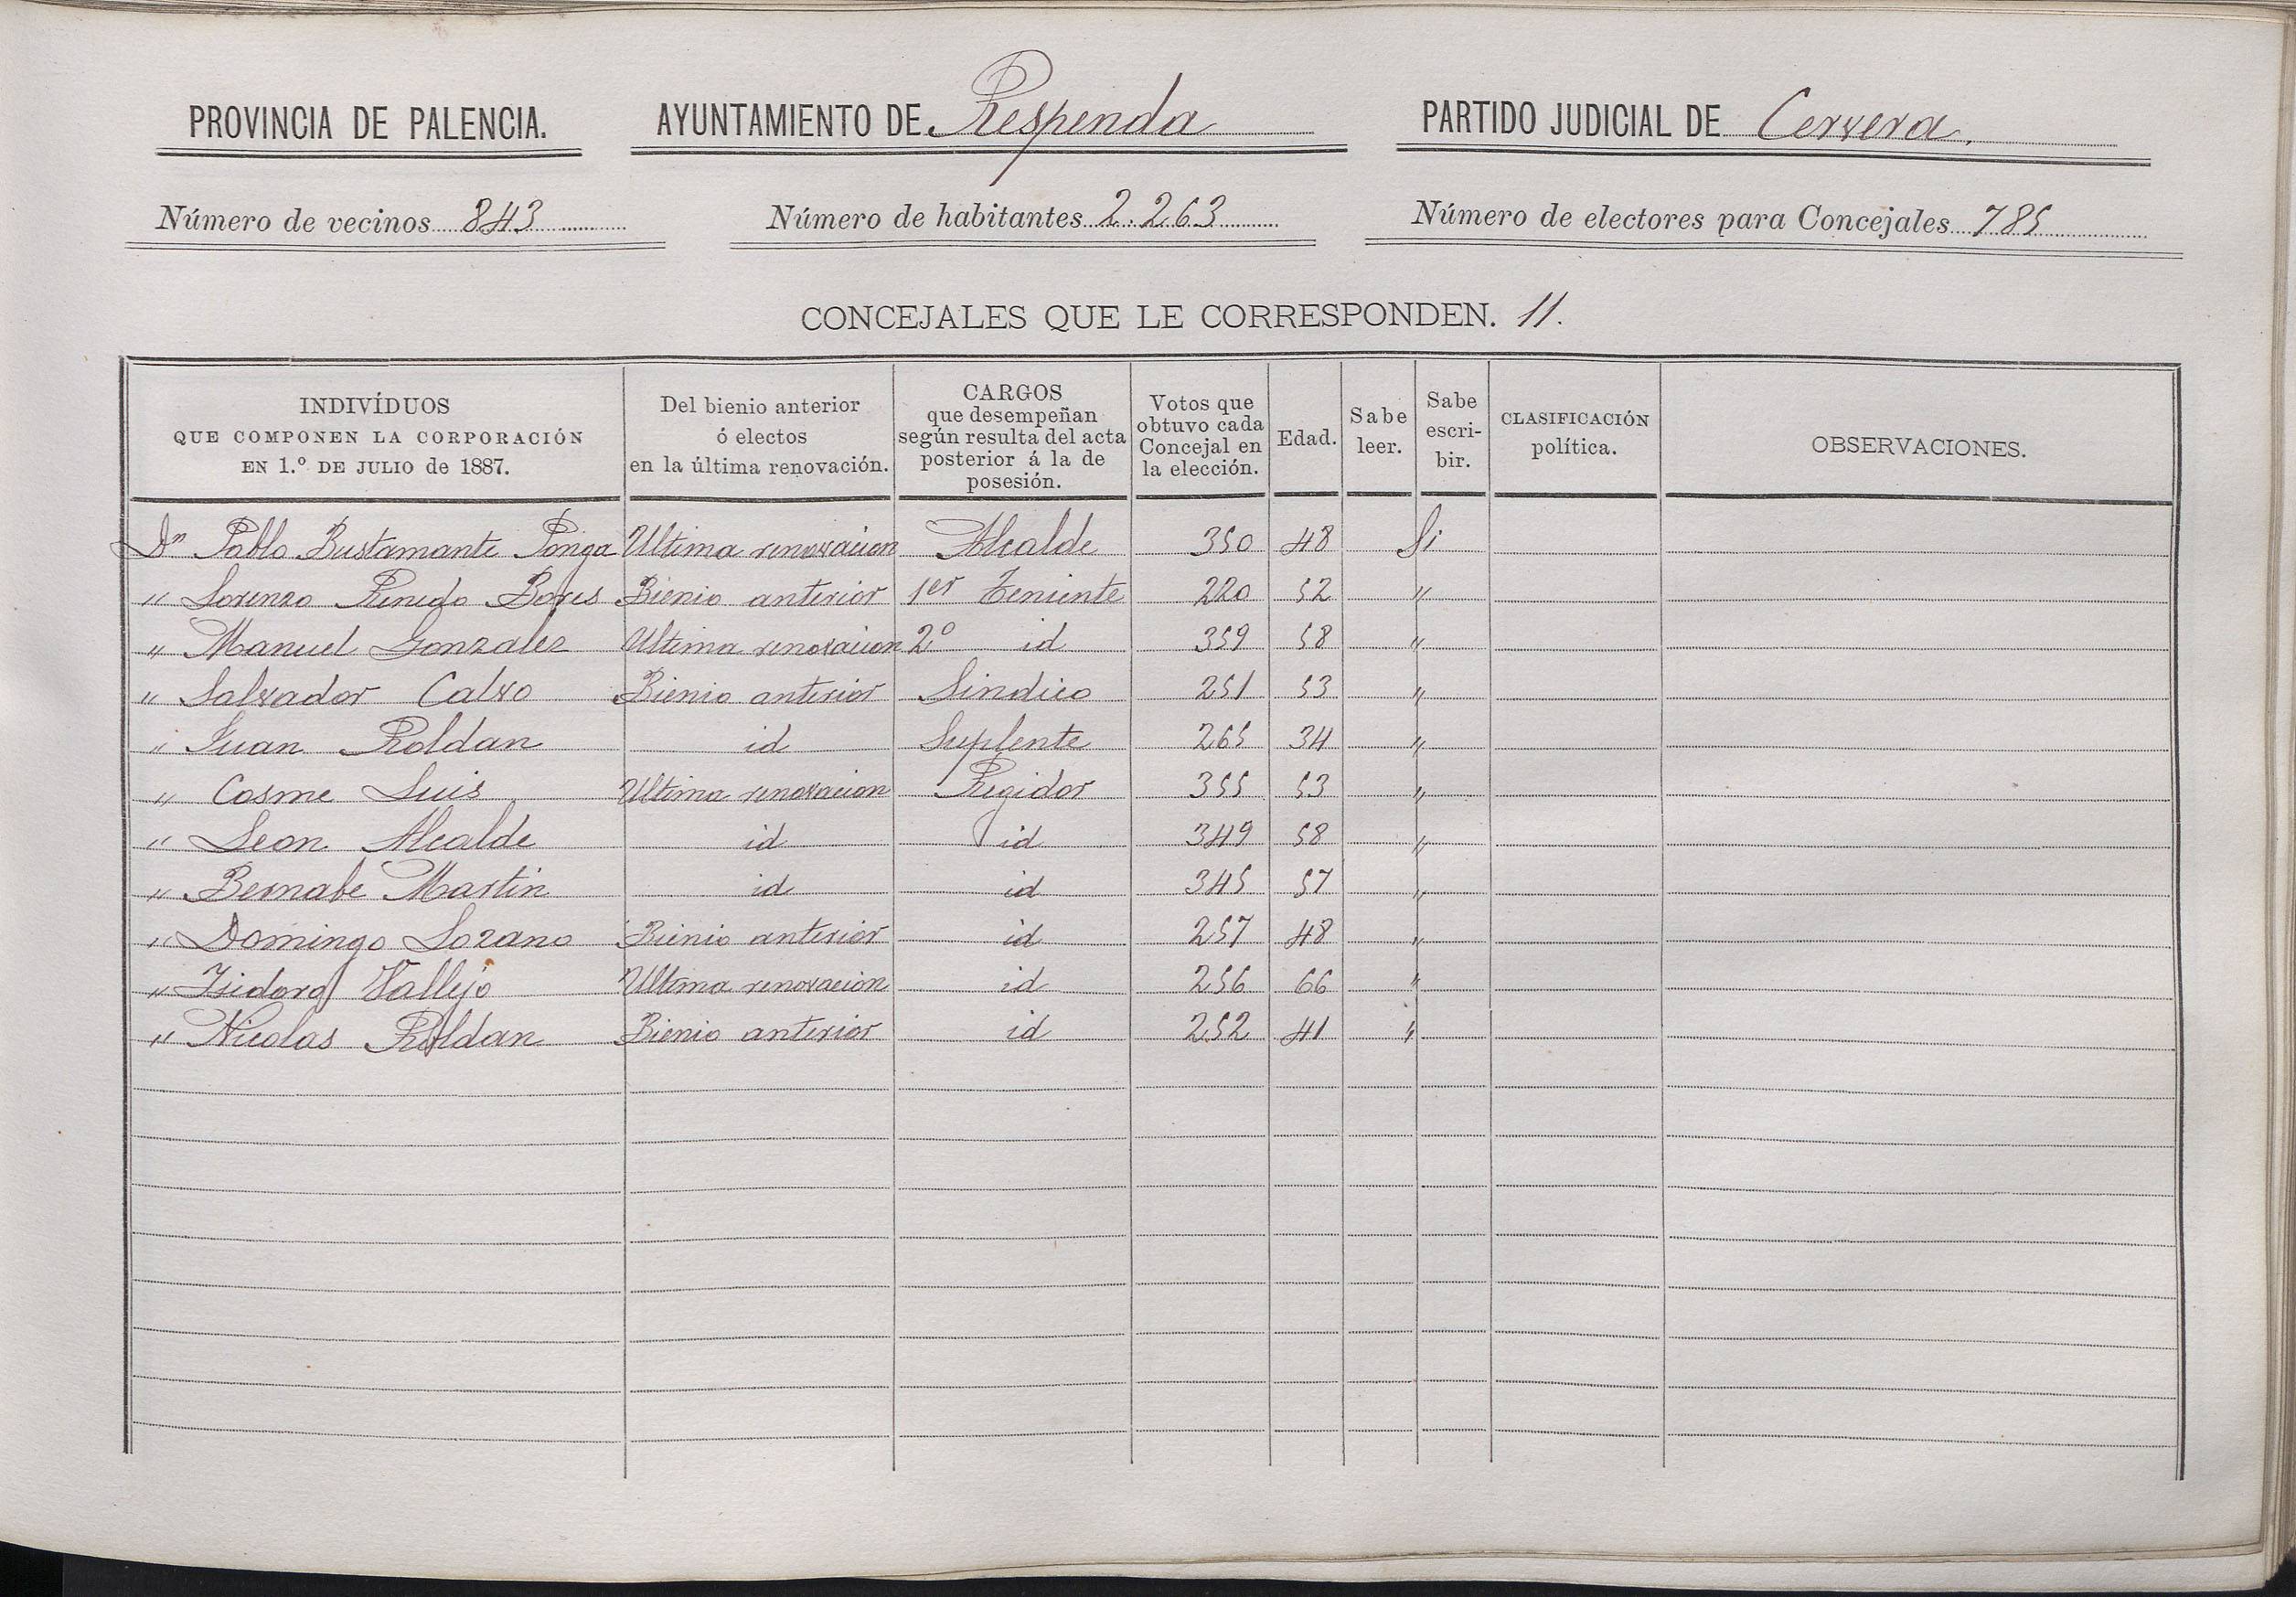 PROVINCIA DE PALENCIA. AYUNTAMIENTO DE Respenda PARTIDO JUDICIAL DE Cervera.
Número de vecinos 843 Número de habitantes 2.263 Número de electores para Concejales 785
CONCEJALES QUE LE CORRESPONDEN. 11.
INDIVÍDUOS
QUE COMPONEN LA CORPORACIÓN
EN 1.º DE JULIO de 1887.
Del bienio anterior
ó electos
en la última renovación.
CARGOS
que desempeñan
según resulta del acta
posterior á la de
posesión.
Votos que
obtuvo cada
Concejal en
la elección.
Edad.
Sabe
leer.
Sabe
escri-
bir.
CLASIFICACIÓN
política.
OBSERVACIONES.
Dn Pablo Bustamante Ponga Ultima renovacion Alcalde 350 48 Si
" Lorenzo Renedo Bores Bienio anterior 1er Teniente 220 52 "
" Manuel Gonzalez Ultima renovacion 2º id 359 58 "
" Salvador Calvo Bienio anterior Sindico 251 53 "
" Juan Roldan id Suplente 265 34 "
" Cosme Luis Ultima renovacion Regidor 355 53 "
" Leon Alcalde id id 349 58 "
" Bernabe Martin id id 345 57 "
" Domingo Lozano Bienio anterior id 257 48 "
" Isidoro Vallejo Ultima renovacion id 256 66 "
" Nicolas Roldan Bienio anterior id 252 41 "